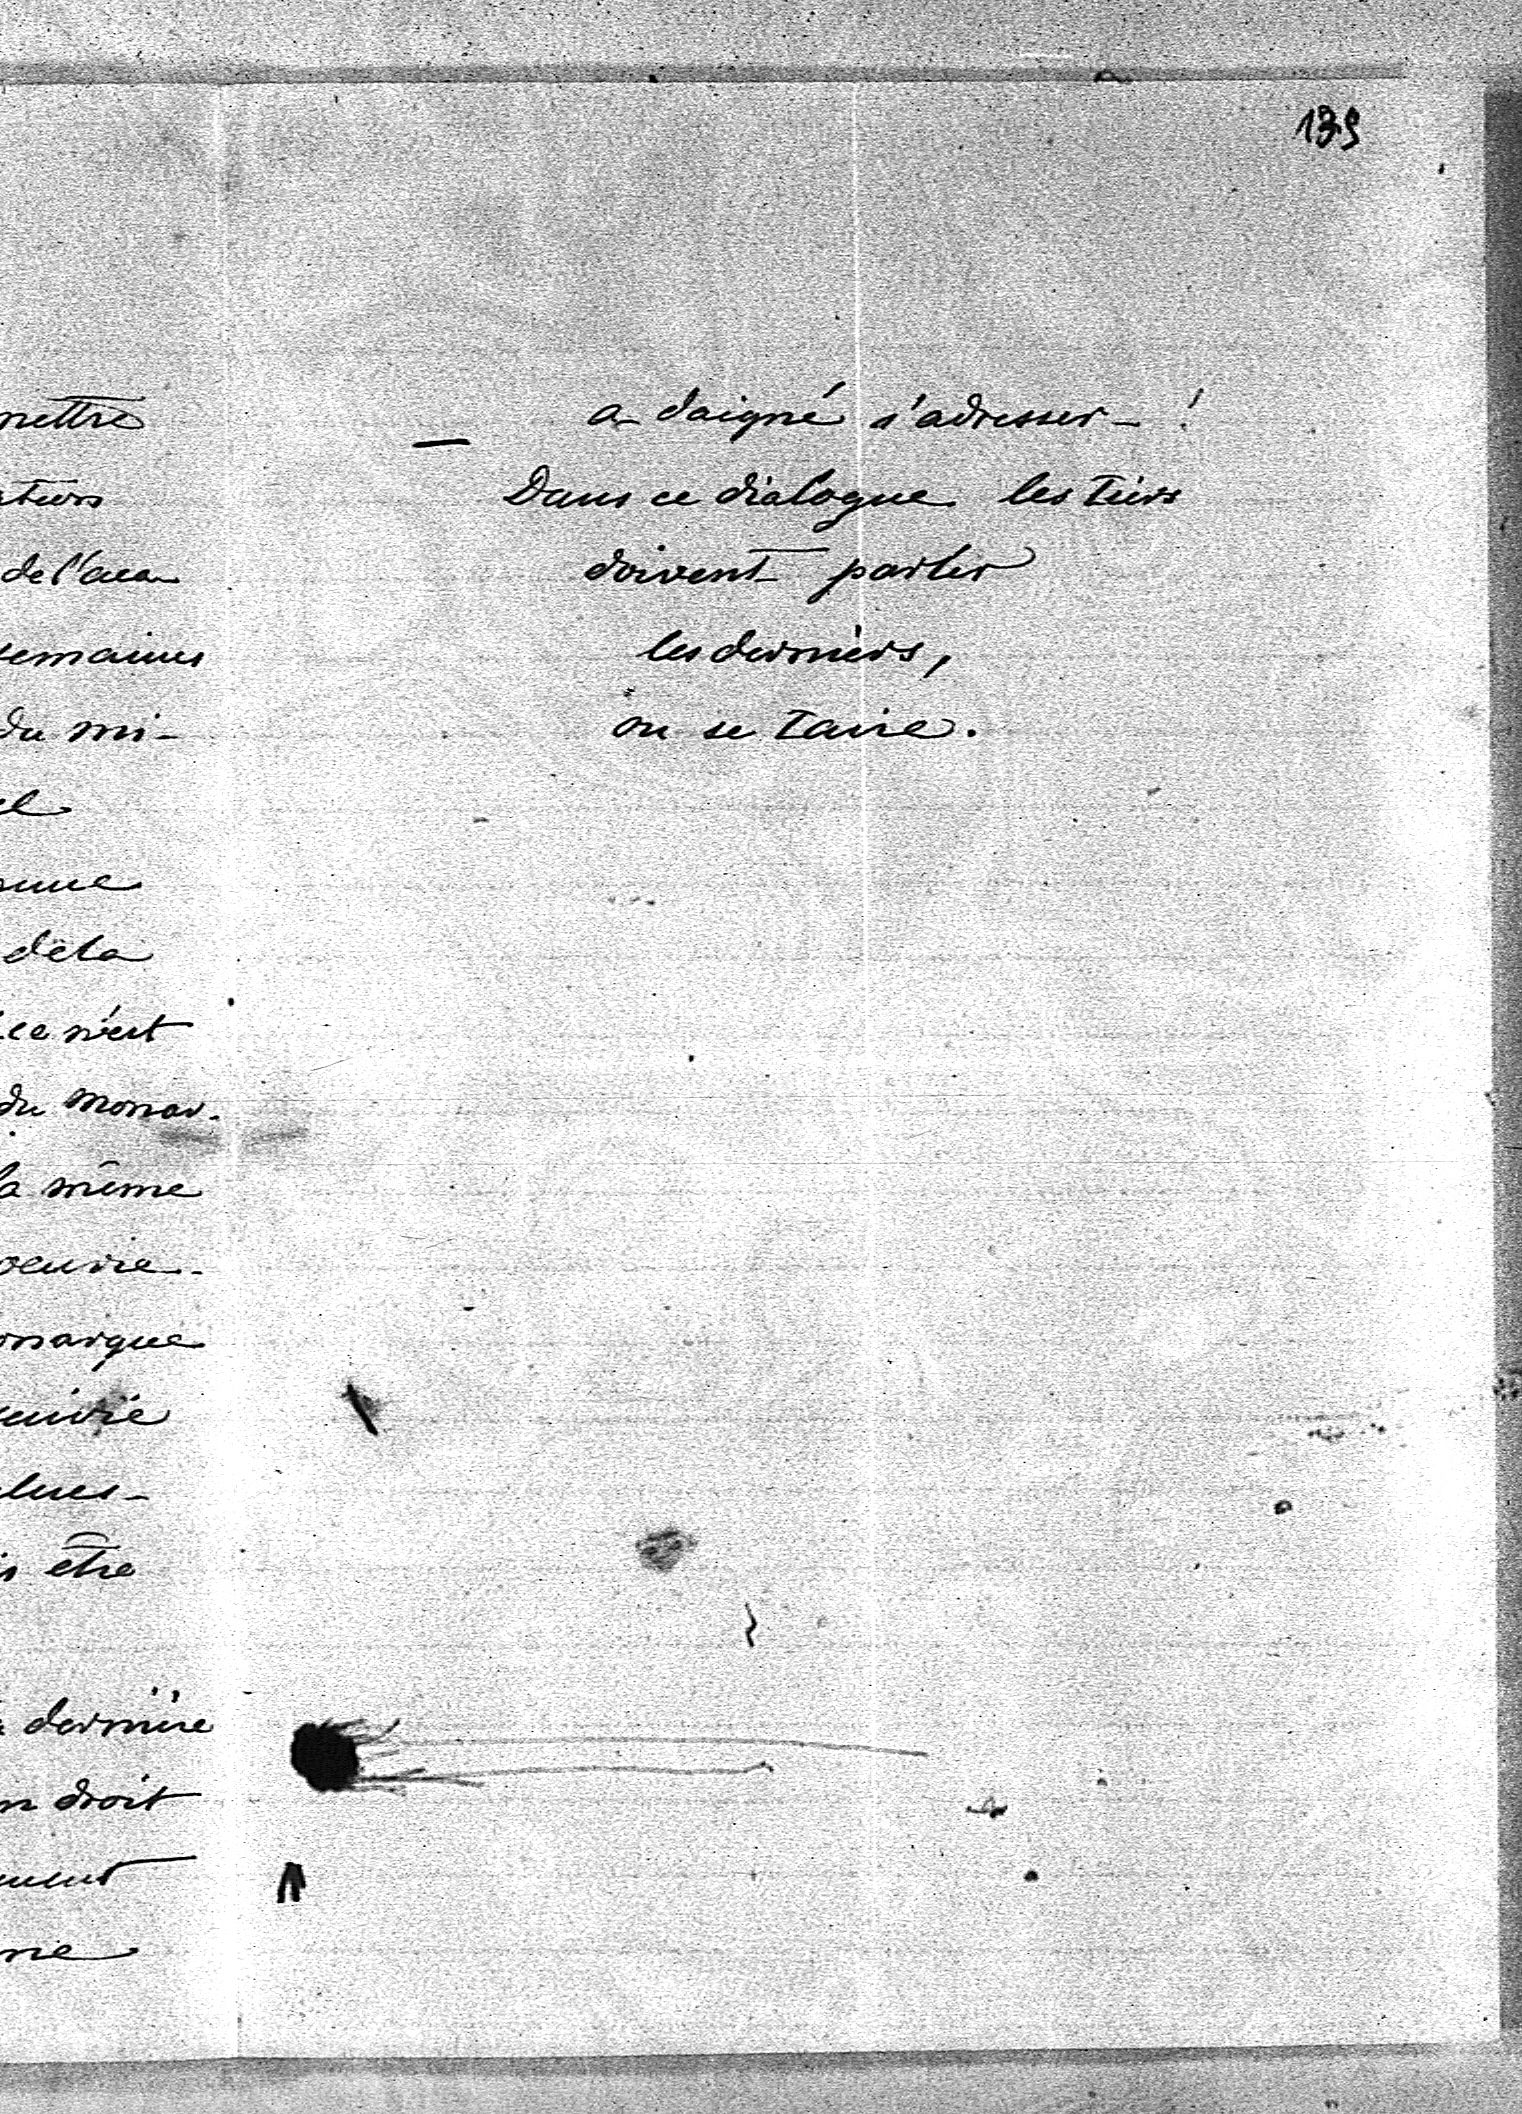 139
mettre
de l'aca
semaines
du mi-
de la
ce n'est
du monar-
la même
oeuvre-
onarque
être
dernière
droit
a daigné s'adresser - !
Dans ce dialogue les tiers
doivent parler
les derniers,
ou se taire.